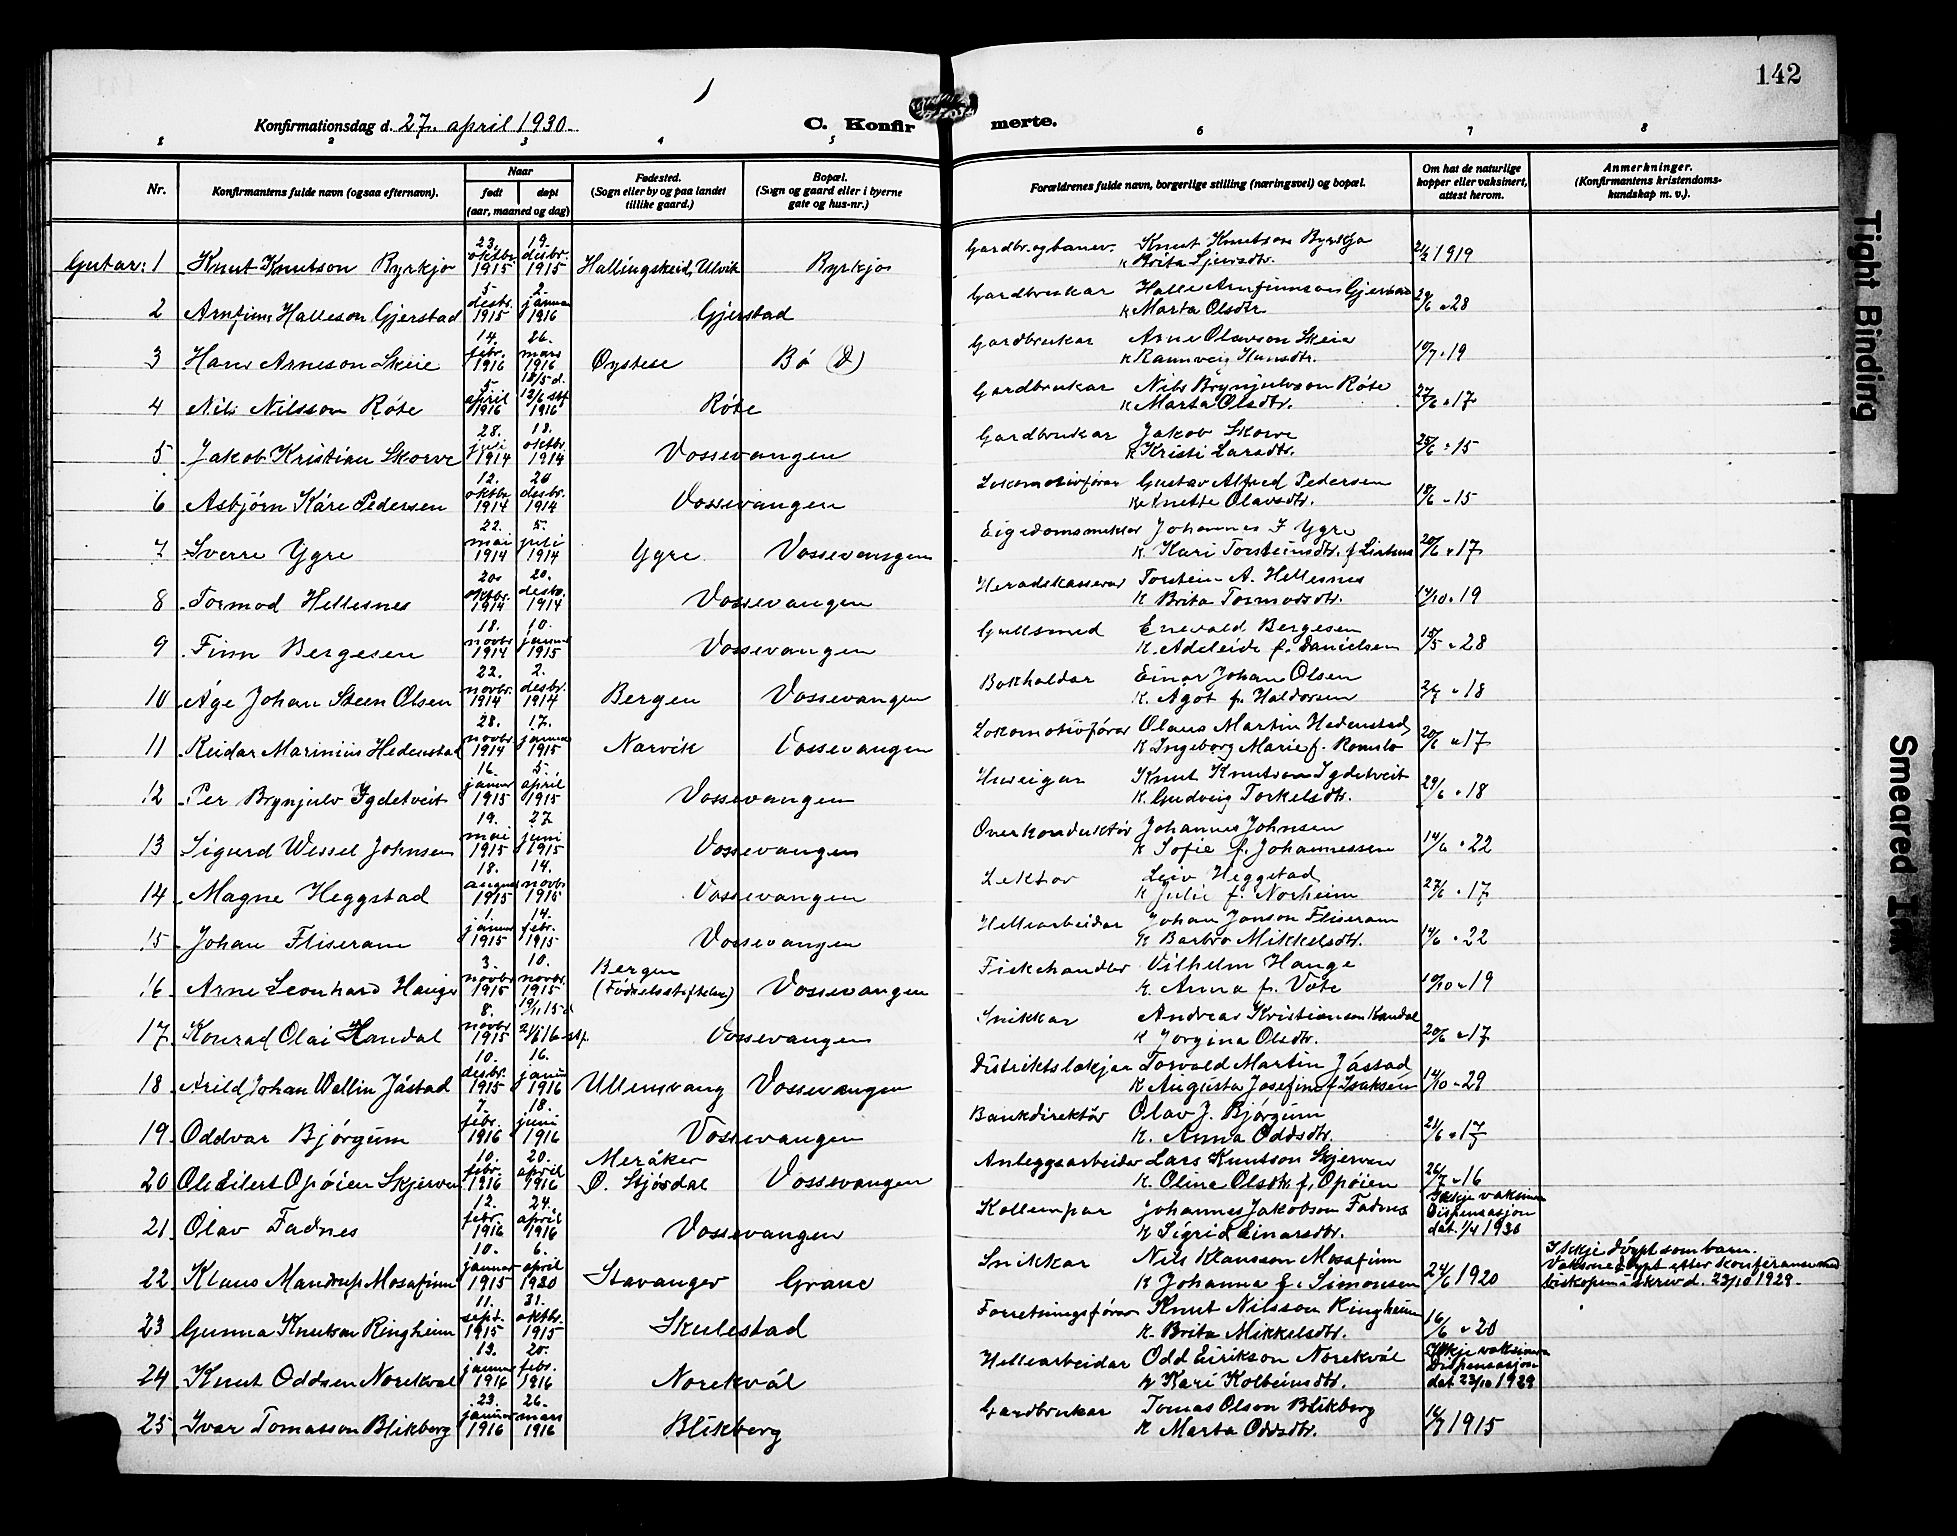 142
Konfirmationsdag d. 27. april 1930.
C. Konfirmerte.
1 2 3 4 5 6 7 8
Nr.
Konfirmantens fulde navn (ogsaa efternavn).
Naar
født døpt
(aar, maaned og dag)
Fødested.
(Sogn eller by og paa landet
tillike gaard.)
Bopæl.
(Sogn og gaard eller i byerne
gate og hus-nr.)
Forældrenes fulde navn, borgerlige stilling (næringsvei) og bopæl.
Om hat de naturlige
kopper eller vaksinert,
attest herom.
Anmerkninger.
(Konfirmantens kristendoms-
kundskap m. v.).
Gutar: 1 Knut Knutson Byrkjo 23. oktbr. 1915 19. desbr. 1915 Hallingskeid, Ulvik Byrkjo Gardbr. og banev. Knut Knutson Byrkjo
K Brita Sjursdtr. 1919
2 Arnfinn Halleson Gjerstad 5. desbr. 1915 2. januar 1916 Gjerstad Gardbrukar Halle Arnfinnson Gjerstad
K Marta Olsdtr. 28
3 Hans Arneson Skeie 14. febr. 1916 26. mars 1916 Øystese Bø Gardbrukar Arne Olavson Skeie
K Rannveig Hansdtr. 10/7 " 19
4 Nils Nilsson Røte 5. april 1916 12/5 d. 12/6 stf. 1916 Røte Gardbrukar Nils Brynjulvson Røte
K Marta Olsdtr. 27/6 " 17
5 Jakob Kristian Skorve 28. juli 1914 18. oktbr. 1914 Vossevangen Gardbrukar Jakob Skorve
K Kristi Larsdtr. 25/6 " 15
6 Asbjörn Kåre Pedersen 12. oktbr. 1914 26 desbr. 1914 Vossevangen Lokomotivförar Gustav Alfred Pedersen
K Anette Olavsdtr. 18/6 " 15
7 Sverre Ygre 22. mai 1914 5. juli 1914 Ygre Vossevangen Eigedomsmeklar Johannes I Ygre
K. Kari Torsteinsdtr. f. 20/6 " 17
8 Tormod Hellesnes 20. oktbr. 1914 20. desbr. 1914 Vossevangen Heradskasserar Torstein A. Hellesnes
K Brita Tormodsdtr. 14/10 " 19
9 Finn Bergesen 18. novbr. 1914 10. januar 1915 Vossevangen Gullsmed Enevald Bergesen
K. Adeleide f. Danielsen 15/5 " 28
10 Åge Johan Steen Olsen 22. novbr. 1914 2. desbr. 1914 Bergen Vossevangen Bokhaldar Einar Johan Olsen
K. Ågot f. Haldorsen " 18
11 Reidar Marinius Hedenstad 28. novbr. 1914 17. januar 1915 Narvik Vossevangen Lokomotivförar Olaus Martin Hedenstad
K Ingeborg Marie f. Romslo 20/6 " 17
12 Per Brynjulv Ygdetveit 16. januar 1915 5. april 1915 Vossevangen Huseigar Knut Knutson Ygdetveit
K. Gudveig Torkelsdtr. 29/6 " 18
13 Sigurd Wessel Johnsen 19. mai 1915 27 juni 1915 Vossevangen Overkonduktör Johannes Johnsen
K Sofie f. Johannessen 14/6 " 22
14 Magne Heggstad 18. august 1915 14. novbr. 1915 Vossevangen Lektor Leiv Heggstad
K Julie f. Norheim 27/6 " 17
15 Johan Fliseram 1. januar 1915 14. febr. 1915 Vossevangen Hellearbeidar Johan Jonson Fliseram
K Barbro Mikkelsdtr. 14/6 " 22
16 Arne Leonhard Hauge 3. novbr. 1915 10. novbr. 1915 Bergen (Födselsstiftelsen) Vossevangen Fiskehandler Vilhelm Hauge
K. Anna f. Vote 10/10 " 19
17 Konrad Olai Kandal 8. novbr. 1915 19/11 15 d. stf. Vossevangen Snikkar Andreas Kristianson Kandal
K Jorgina Olsdtr. 20/6 " 17
18 Arild Johan Wellin Jåstad 10. desbr. 1915 16. januar 1916 Ullensvang Vossevangen Distriktslækjar Torvald Martin Jåstad
K Augusta Josefine f. Isaksen 14/10 " 29
19 Oddvar Bjórgum 7. febr. 1916 18. juni 1916 Vossevangen Bankdirektör Olav J. Bjórgum
K. Anna Oddsdtr. 21/6 " 17
20 Ole Eilert Opóien Skjerven 10. febr. 1916 20. april 1916 Meråker Ø. Stjørdal Vossevangen Anleggsarbeider Lars Knutson Skjerven
K. Olina Olsdtr. f. Opóien 26/7 " 16
21 Olav Fadnes 12. febr. 1916 24. april 1916 Vossevangen Johannes Jakobson Fadnes
K Sigrid Einarsdtr. Ikkje vaksinert Dispensasjon dat. 1/4 1930
22 Klaus Mandrup Mosafinn 10. januar 1915 6. april 1930 Stavanger Grane Snikkar Nils Klausson Mosafinn
K Johanna f. Simonsen 24/6 1920 Ikkje döypt som barn.
Vaksne döypt etter konferanse med
biskopen i skriv d. 23/10 1929.
23 Gunna Knutson Ringheim 11. sept. 1915 31. oktbr. 1915 Skulestad Forretningsförar Knut Nilsson Ringheim
K. Brita Mikkelsdtr. 16/6 " 20
24 Knut Oddsen Norekvål 13. januar 1916 20. febr. 1916 Norekvål Hellearbeidar Odd Eirikson Norekvål
K Kari Kolbeinsdtr. Ikkje vaksinert Dispensasjon dat 23/10 1929
25 Ivar Tomasson Blikberg 23. januar 1916 26. mars 1916 Blikberg Gardbrukar Tomas Olson Blikberg
K Marta Oddsdtr. 1915
Tight Binding
Smeared Ink